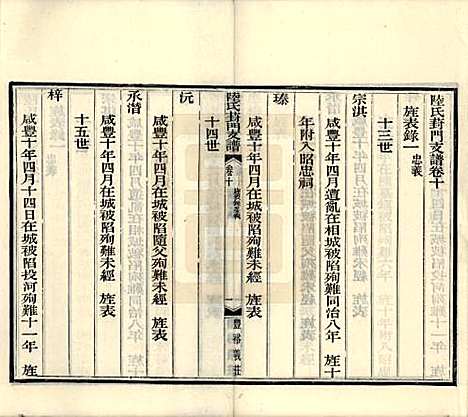 陸氏葑門支譜卷十
旌表錄一 忠義
十三世
宗淇
咸豐十年四月遭亂在相城被陷殉難同治八年 旌十
年附入昭忠祠
瑧
咸豐十年四月在城被陷殉難未經 旌表
陸氏葑門支譜 卷十 一 豐裕義莊
十四世
沅
咸豐十年四月在城被陷隨父殉難未經 旌表
永潛
咸豐十年四月在城被陷殉難未經 旌表
十五世
梓
咸豐十年四月十四日在城被陷投河殉難十一年 旌